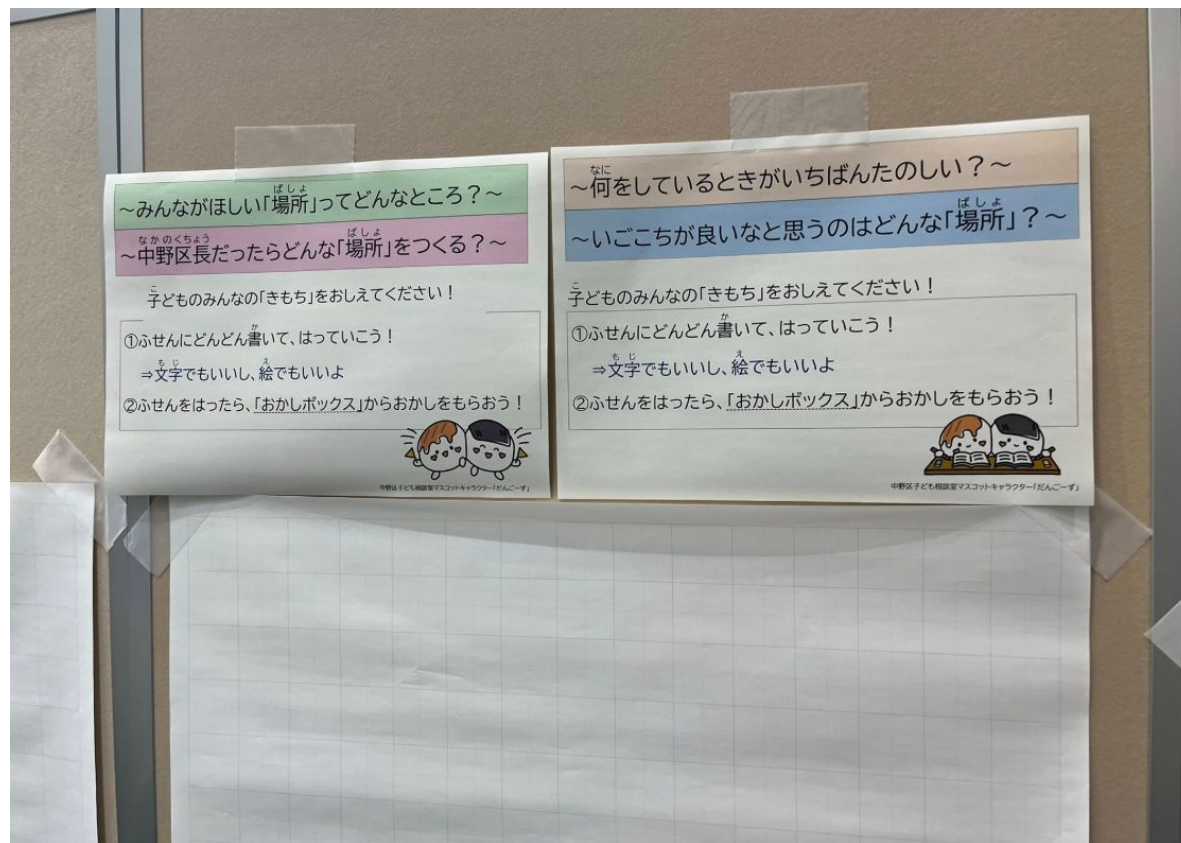 ～みんながほしい「場所」ってどんなところ？～
ばしょ
～中野区長だったらどんな「場所」をつくる？～
なかのくちょう
ばしょ
子どものみんなの「きもち」をおしえてください！
こ
①ふせんにどんどん書いて、はっていこう！
か
⇒文字でもいいし、絵でもいいよ
もじ
え
②ふせんをはったら、「おかしボックス」からおかしをもらおう！
中野区子ども相談室マスコットキャラクター「だんごーず」
～何をしているときがいちばんたのしい？～
なに
～いごこちが良いなと思うのはどんな「場所」？～
ばしょ
子どものみんなの「きもち」をおしえてください！
こ
①ふせんにどんどん書いて、はっていこう！
か
⇒文字でもいいし、絵でもいいよ
もじ
え
②ふせんをはったら、「おかしボックス」からおかしをもらおう！
中野区子ども相談室マスコットキャラクター「だんごーず」